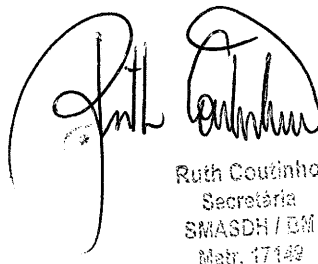 Ruth Coutinho
Ruth Coutinho
Secretária
SMASDH / BM
Matr. 17149